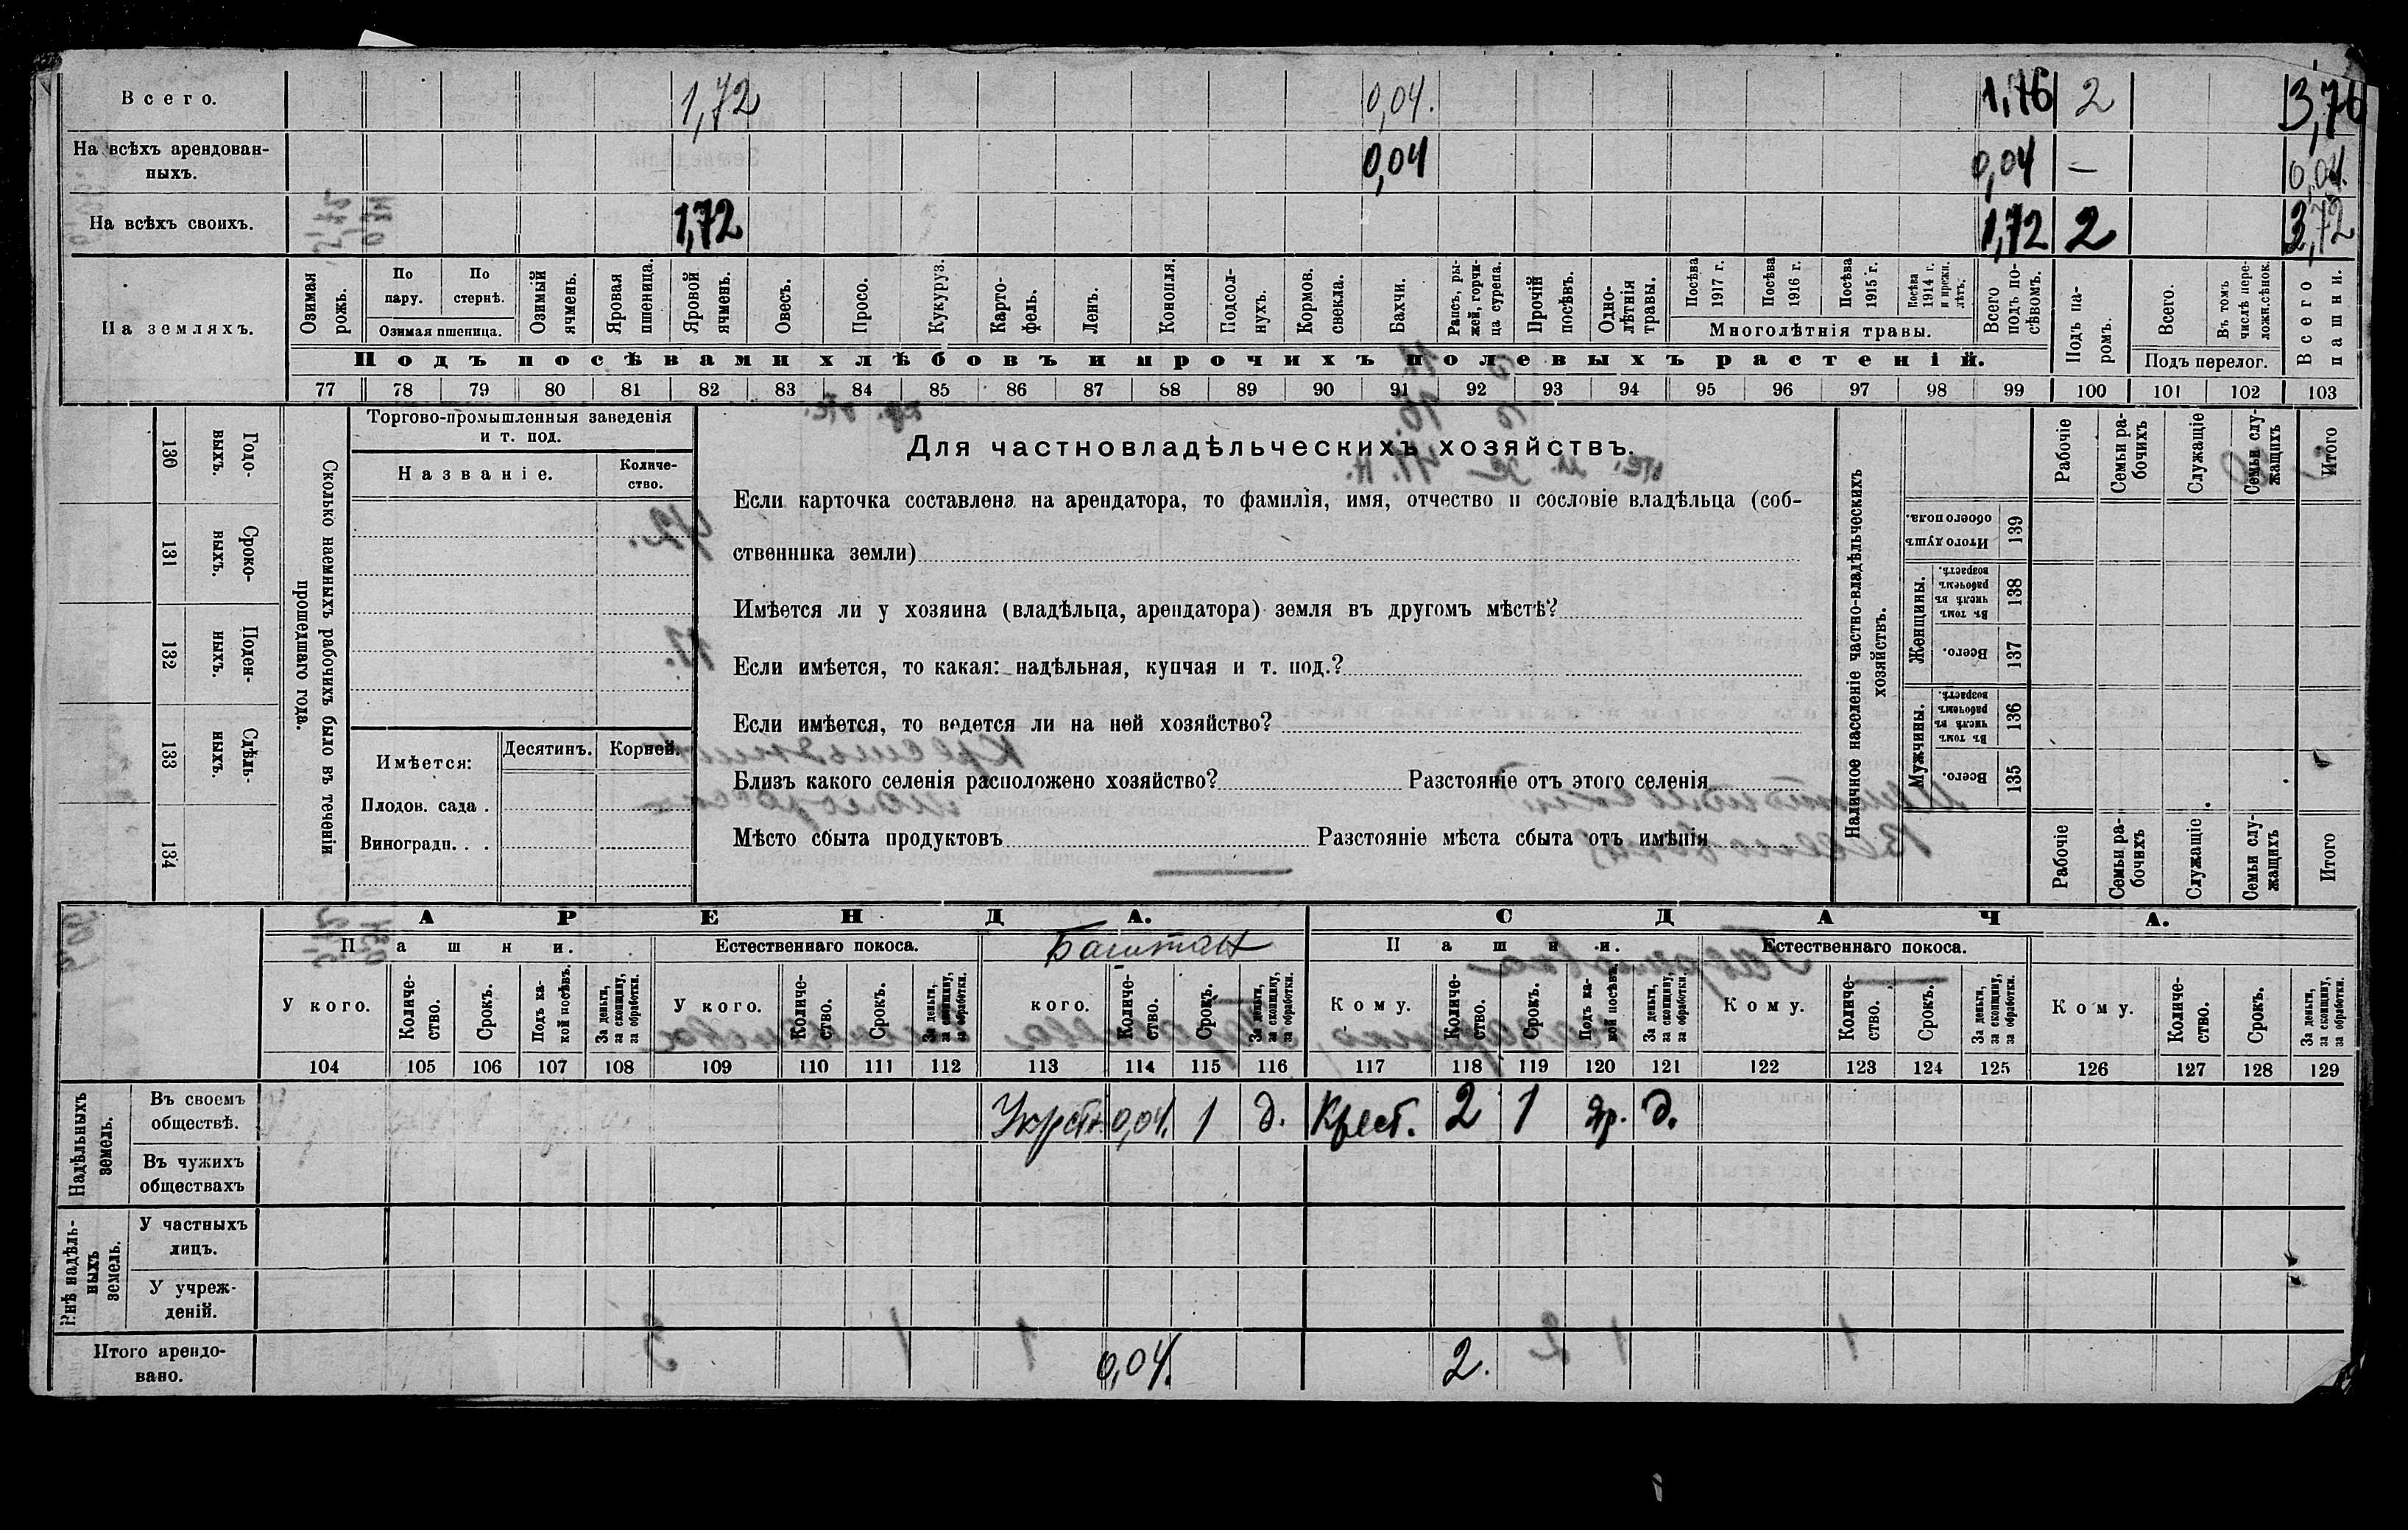 Всего. 1,72 0,04. 1,76 2 3,76
На всѣхъ арендован-
ныхъ. 0,04 0,04 — 0,04.
На всѣхъ своихъ. 1,72 1,72 2 3,72
На земляхъ.
Озимая рожь.
По пару.
По стернѣ.
Озимая пшеница.
Озимый ячмень.
Яровая пшеница.
Яровой ячмень.
Овесъ.
Просо.
Кукуруз.
Карто-
фель.
Ленъ.
Конопля.
Подсол-
нухъ.
Кормов.
свекла.
Бахчи.
Рапсъ, ры-
жей, горчи-
ца сурепа.
Прочій
посѣвъ.
Одно-
лѣтнія
травы.
Посѣва
1917 г.
Посѣва
1916 г.
Посѣва
1915 г.
Посѣва
1914 г.
и прежн.
лѣтъ.
Многолѣтнія травы.
Всего
подъ по-
сѣвомъ.
Подъ па-
ромъ.
Всего.
Въ томъ
числѣ пере-
ложн.сѣнок.
Подъ перелог.
Всего
пашни.
Подъ посѣвами хлѣбовъ и прочихъ полевыхъ растеній.
77 78 79 80 81 82 83 84 85 86 87 88 89 90 91 92 93 94 95 96 97 98 99 100 101 102 103
Сколько наемныхъ рабочихъ было въ теченіи
прошедшаго года.
Годо-
выхъ.
130
Сроко-
ныхъ.
131
Поден-
ныхъ.
132
Сдѣль-
ныхъ.
133
134
Торгово-промышленныя заведенія
и т. под.
Названіе.
Количе-
ство.
Имѣется:
Десятинъ. Корней.
Плодов. сада .
Виноградн. . .
Для частновладѣльческихъ хозяйствъ.
Если карточка составлена на арендатора, то фамилія, имя, отчество и сословіе владѣльца (соб-
ственника земли)
Имѣется ли у хозяина (владѣльца, арендатора) земля въ другомъ мѣстѣ?
Если имѣется, то какая: надѣльная, купчая и т. под.?
Если имѣется, то ведется ли на ней хозяйство?
Близъ какого селенія расположено хозяйство? Разстояніе отъ этого селенія
Мѣсто сбыта продуктовъ Разстояніе мѣста сбыта отъ имѣнія
Наличное населеніе частно-владѣльческихъ
хозяйствъ.
Рабочіе
Семьи ра-
бочихъ
Служащіе
Семьи слу-
жащихъ
Итого
Итого душъ
обоего пола.
139
Женщины.
Въ томъ
числѣ въ
рабочемъ
возрастѣ.
138
Всего.
137
Мужчины.
Въ томъ
числѣ въ
рабочемъ
возрастѣ.
136
Всего.
135
Рабочіе
Семьи ра-
бочихъ
Служащіе
Семьи слу-
жащихъ
Итого
АРЕНДА. СДАЧА.
Пашни. Естественнаго покоса. Баштан Пашни. Естественнаго покоса.
У кого. Количе-
ство. Срокъ. Подъ ка-
кой посѣвъ. За деньги,
за скопщину,
за обработки.
У кого. Количе-
ство. Срокъ. За деньги,
за скопщину,
за обработки.
кого. Количе-
ство. Срокъ. За деньги,
за скопщину,
за обработки.
Кому. Количе-
ство. Срокъ. Подъ ка-
кой посѣвъ. За деньги,
за скопщину,
за обработки.
Кому. Количе-
ство. Срокъ. За деньги,
за скопщину,
за обработки.
Кому. Количе-
ство. Срокъ. За деньги,
за скопщину,
за обработки.
104 105 106 107 108 109 110 111 112 113 114 115 116 117 118 119 120 121 122 123 124 125 126 127 128 129
Надѣльныхъ
земель.
Въ своемъ
обществѣ. 0,04. 1 д. Крест. 2 1 яр. д.
Въ чужихъ
обществахъ
Внѣ надѣль-
ныхъ
земель.
У частныхъ
лицъ.
У учреж-
деній.
Итого арендо-
вано. 0,04. 2.